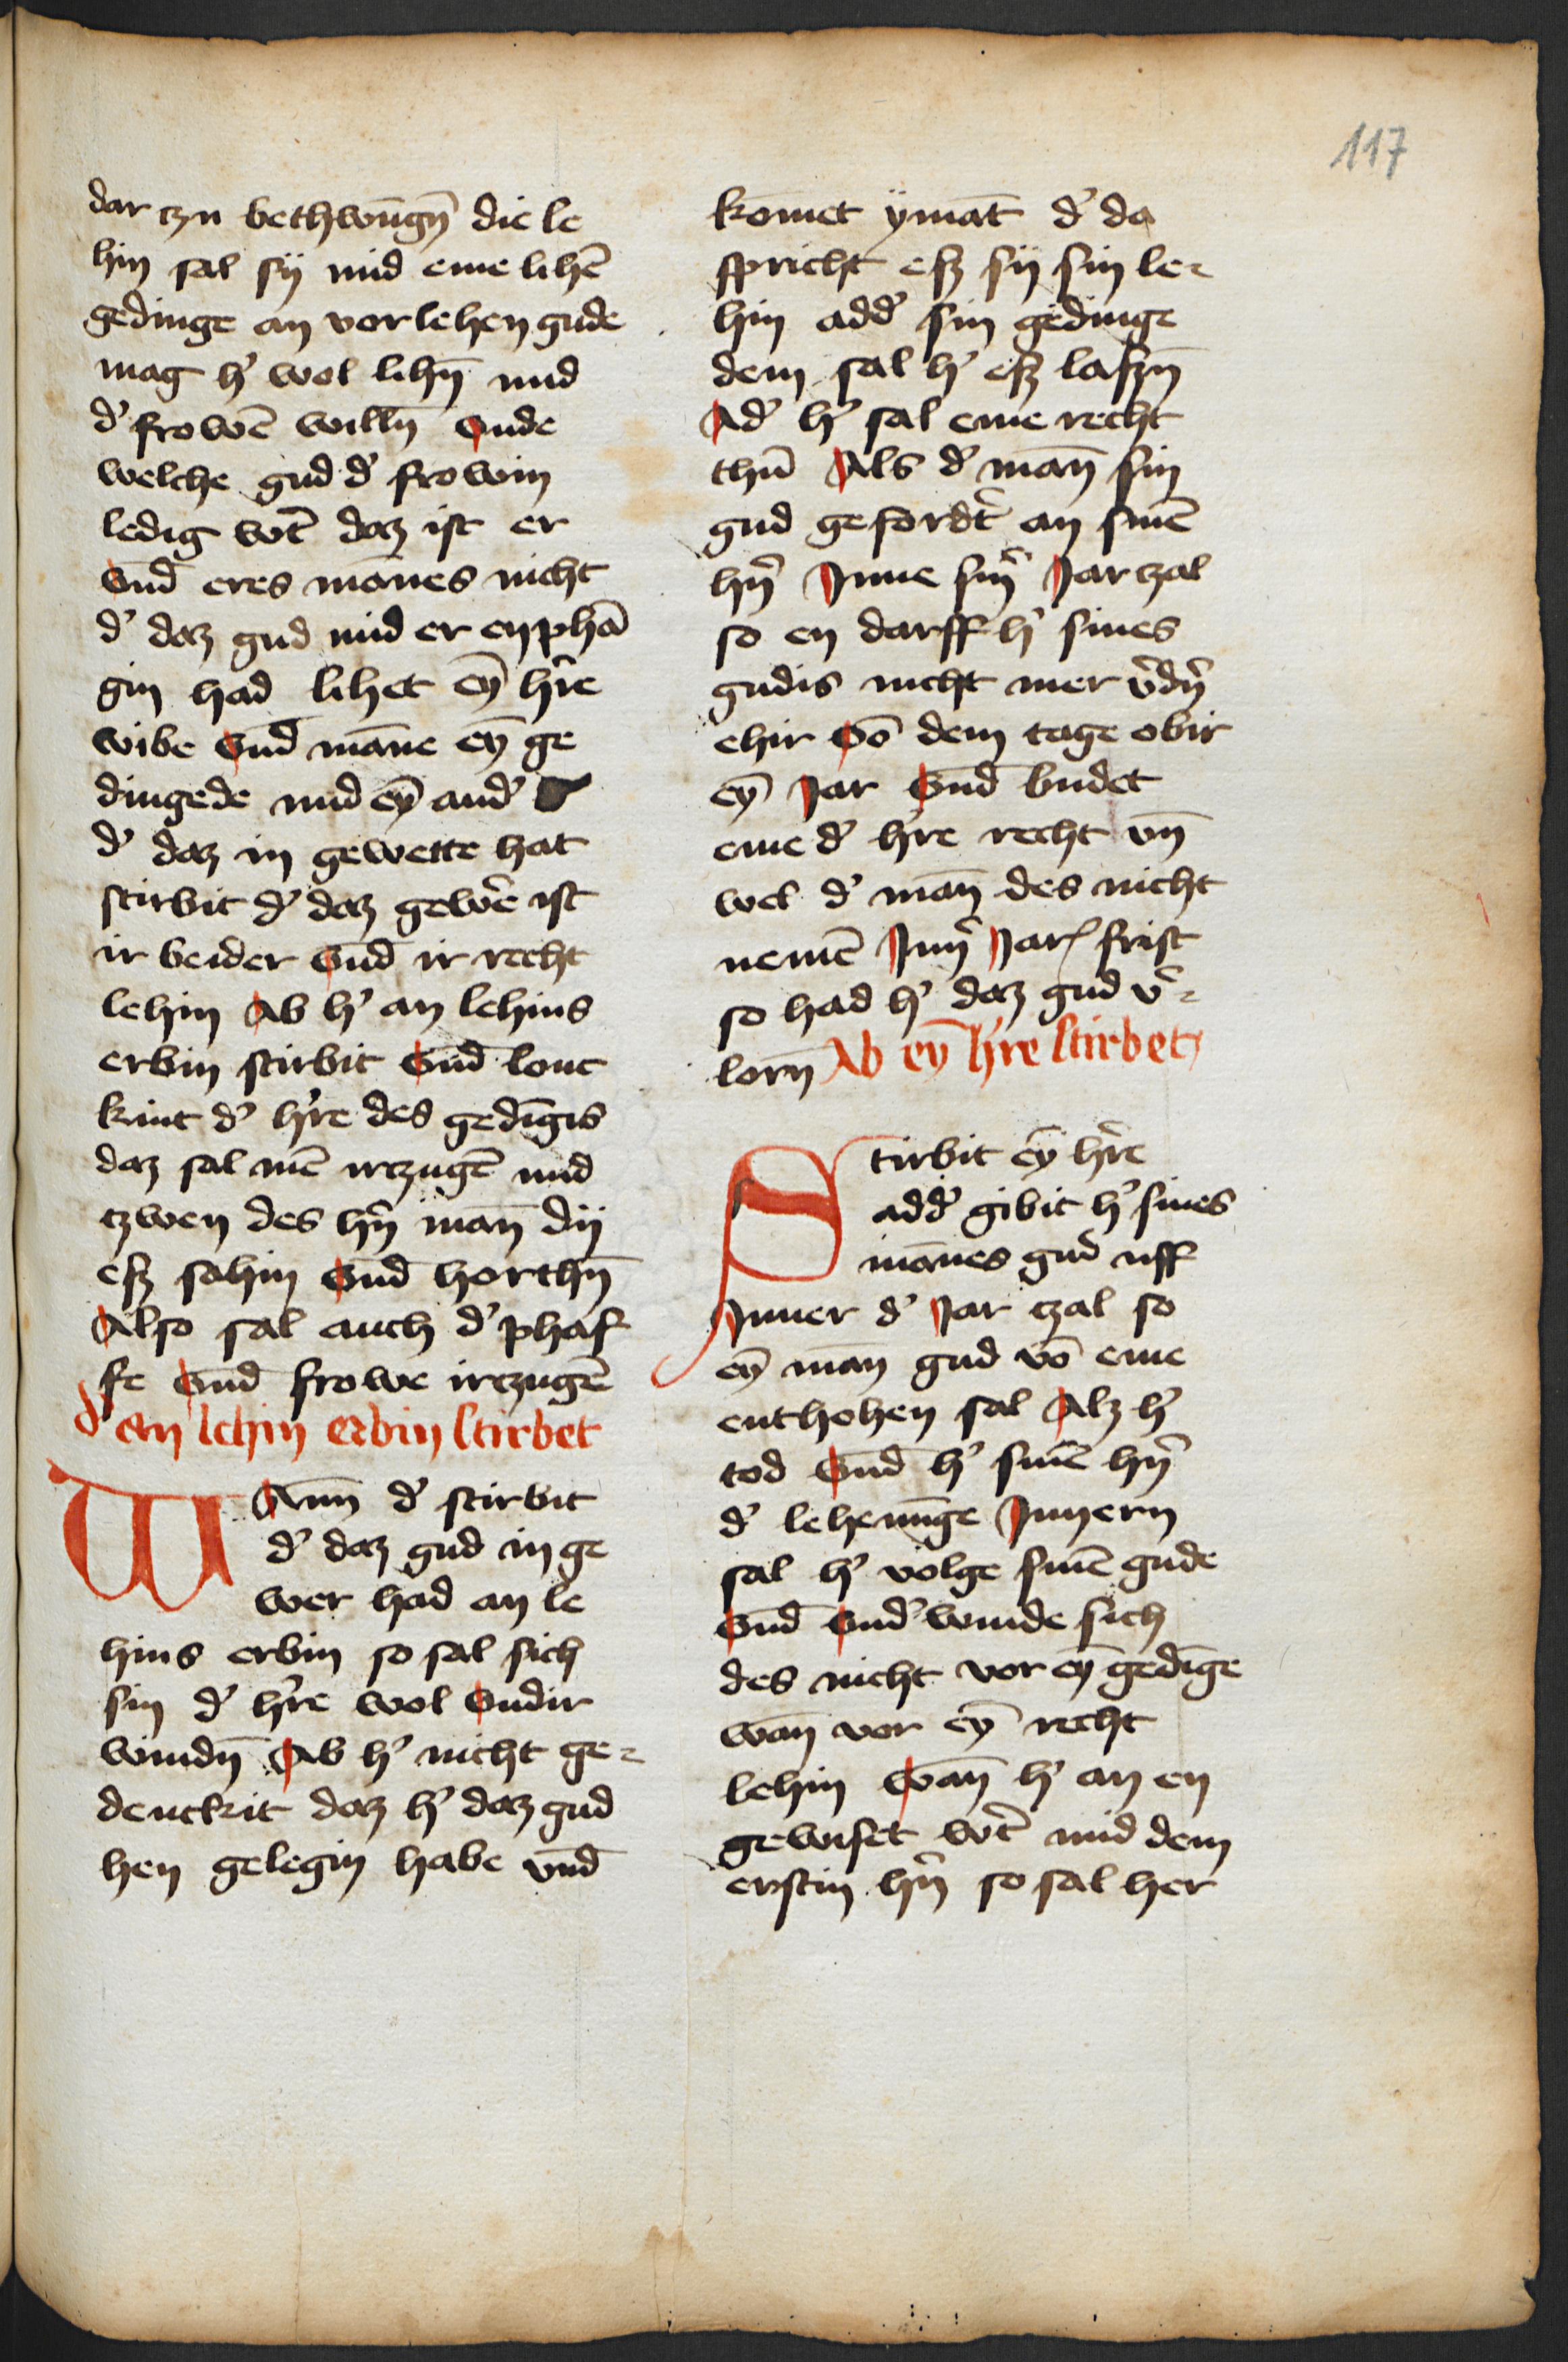 117
dar tzu bethwūgꝫ̄ die le
hin sal sij mid eme lihē
gedinge an vorlehen gude
mag h' wol lihn̄ mid
d' frowē willn̄ Unde
welche gud d' frowin
ledig wꝰt daz ist er
Und̄ eres mānes nicht
d' daz gud mid er enphā
gin had lihet eyn̄ h're
wibe Und̄ māne eyn̄ ge
dingede mid eyn̄ and'
d' daz in gewette hat
stirbit d' daz gew'e ist
ir beider Und̄ ir recht
lehin Ab h' an lehins
erbin stirbit Und̄ louc
kint d' h're des gedīgis
daz sal mē irtzugē mid
tzwen des h'n man̄ dij
esz sahin Und̄ horthn̄
Also sal auch d' phaf
fe Und̄ frowe irtzugē
d' an lehin erbin stirbet
WAnn̄ d' stirbit
d' daz gud in ge
wer had an le
hins erbin so sal sich
sin d' h're wol Undir
windn̄ Ab h' nicht ge-
denckit daz h' daz gud
hen gelegin habe vnd̄
komet ymāt d' da
spricht esz sij sin le-
hin add' sin gedinge
dem sal h' esz laszn̄
Ad' h' sal eme recht
thū Als d' man̄ sin
gud gefordt' an sinē
h'n Inne sin' Jar tzal
so en darff h' sines
gudis nicht mer v'd'n
ehir Vō dem tage obir
eyn̄ Jar Und̄ budet
eme d' h're recht vn̄
wel d' man̄ des nicht
nemē Inn' Jar frist
so had h' daz gud v'-
lorn̄ Ab eyn̄ h're stirbet
Stirbit eyn̄ h're
add' gibit h' sines
mānes gud uff
Inner d' Jar tzal so
eyn̄ man gud vō eme
enthohen sal Alz h'
tod Und̄ h' sinē h'n
d' lehenūge Innern
sal h' volge sinē gude
Und̄ Und' winde sich
des nicht vor eyn̄ gedīge
wan̄ vor eyn̄ recht
lehin Wan̄ h' an en
gewiset wꝰt mid dem
erstin h'n so sal her